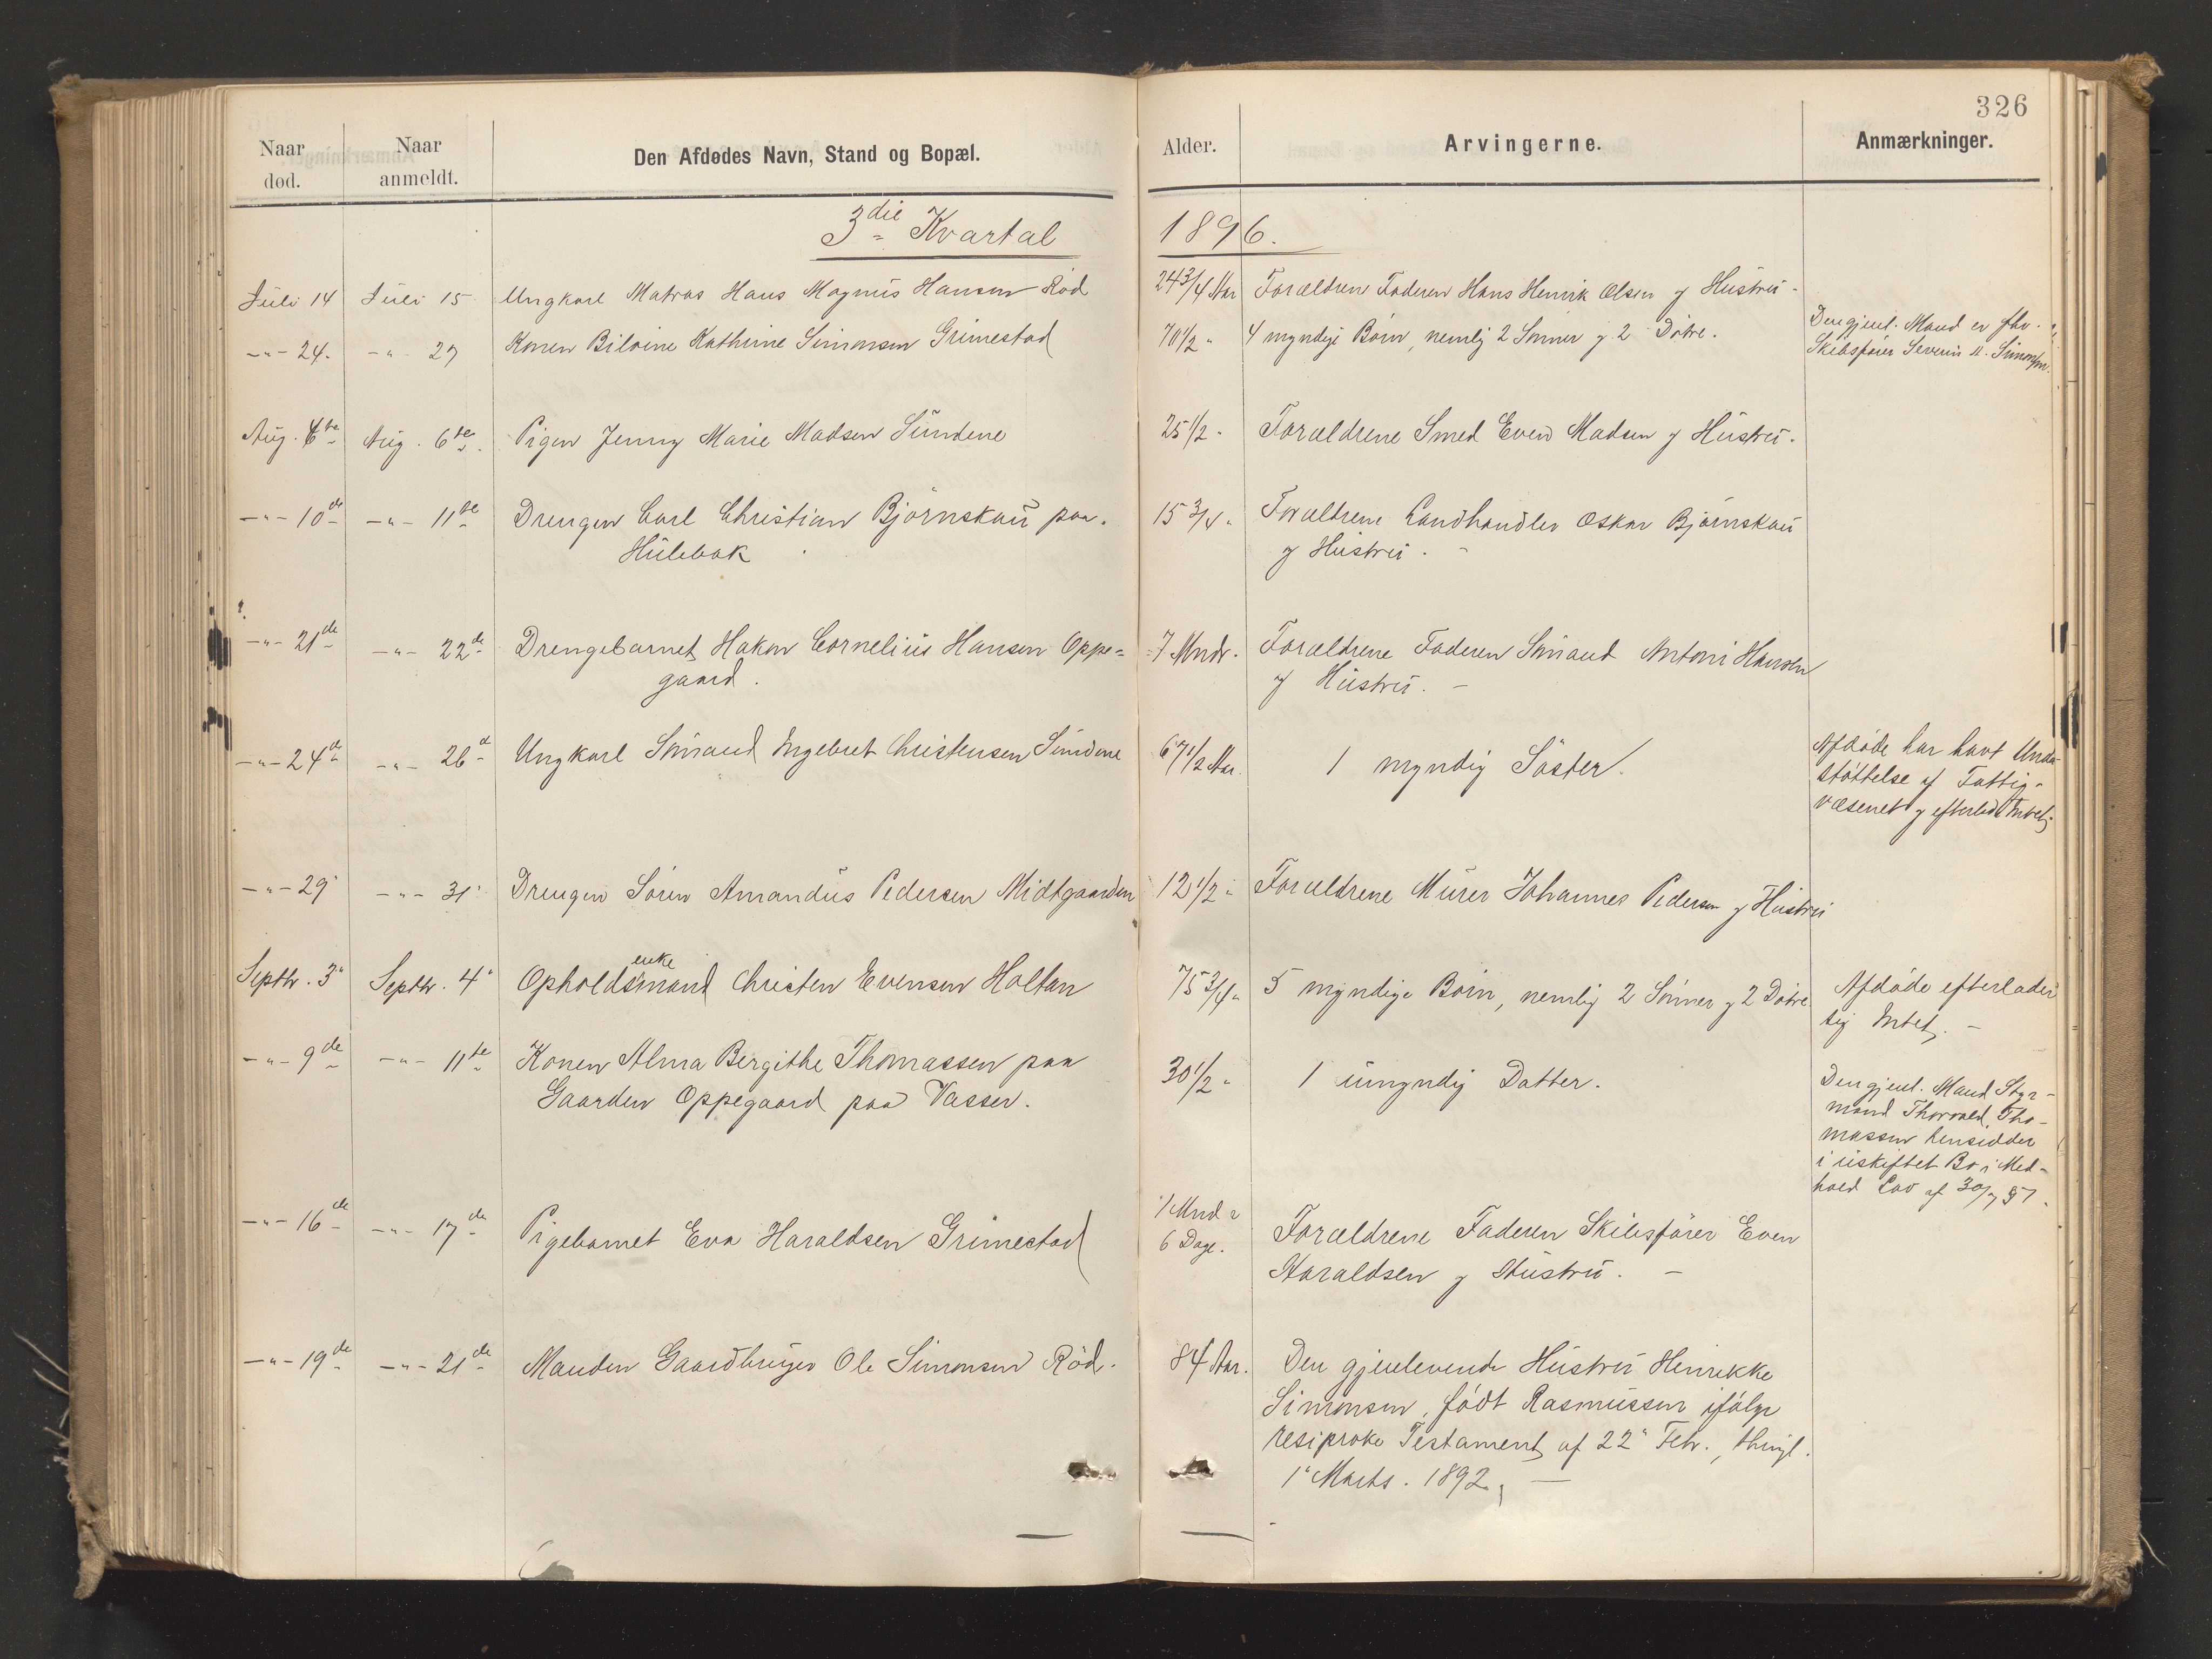 326
Naar død.
Naar anmeldt.
Den Afdødes Navn, Stand og Bopæl.
Alder.
Arvingerne.
Anmærkninger.
3die Kvartal
1896.
Juli 14 Juli 15 Ungkarl Matros Hans Magnus Hansen Röd 24 3/4 Aar Forældrene Faderen Hans Henrik Olsen og Hustru -
-"- 24. -"- 27 Konen Kathrine Simonsen Grimestad 70 1/2 " 4 myndige Börn, nemlig 2 Sönner og 2 Dötre.
Den gjenl. Mand er fhv.
Skibsfører Severin Simonsen.
Aug. 4de Aug. 6te Pigen Jenny Marie Madsen Sundene 25 1/2 " Forældrene Smed Even Madsen og Hustru.
-"- 10de -"- 11te Drengen Carl Christian Björnskau paa 15 3/4 " Forældrene Landhandler Oskar Björnskau
Hulebak og Hustru. -
-"- 21de -"- 22de Drengebarnet Hakon Cornelius Hansen Oppe= 7 Mndr. Forældrene Faderen Sömand Antoni Hansen
gaard. og Hustru. -
-"- 24de -"- 26de Ungkarl Sömand Engebret Christensen Sundene 67 1/2 Aar. 1 myndig Söster.
Afdöde har havt Under-
støttelse af Fattig-
væsenet og efterlod Intet.
-"- 29 -"- 31 Drengen Sören Amandus Pedersen Midtgaarden 12 1/2 " Forældrene Murer Johannes Pedersen og Hustru
enke
Septbr. 3 Septbr. 4 Opholdsmand Christen Evensen Holtan 75 3/4 " 5 myndige Börn, nemlig 2 Sönner og 2 Dötre
Afdöde efterlader
sig Intet. -
-"- 9de -"- 11te Konen Alma Bergithe Thomassen paa 30 1/2 " 1 umyndig Datter.
Gaarden Oppegaard paa Vasser.
Den gjenl. Mand Styr-
mand Thorvald Tho-
massen hensidder
i uskiftet Bo i Med-
hold Lov af 30/7 51.
-"- 16de -"- 17de Pigebarnet Eva Haraldsen Grimestad 1 Mnd
6 Dage. Forældrene Faderen Skibsfører Even
Haraldsen og Hustru. -
-"- 19de -"- 21de Manden Gaardbruger Ole Simonsen Röd. 84 Aar. Den gjenlevende Hustru Henrikke
Simonsen, född Rasmussen ifølge
resiproke Testament af 22 Febr., thingl.
1 Marts. 1892, -